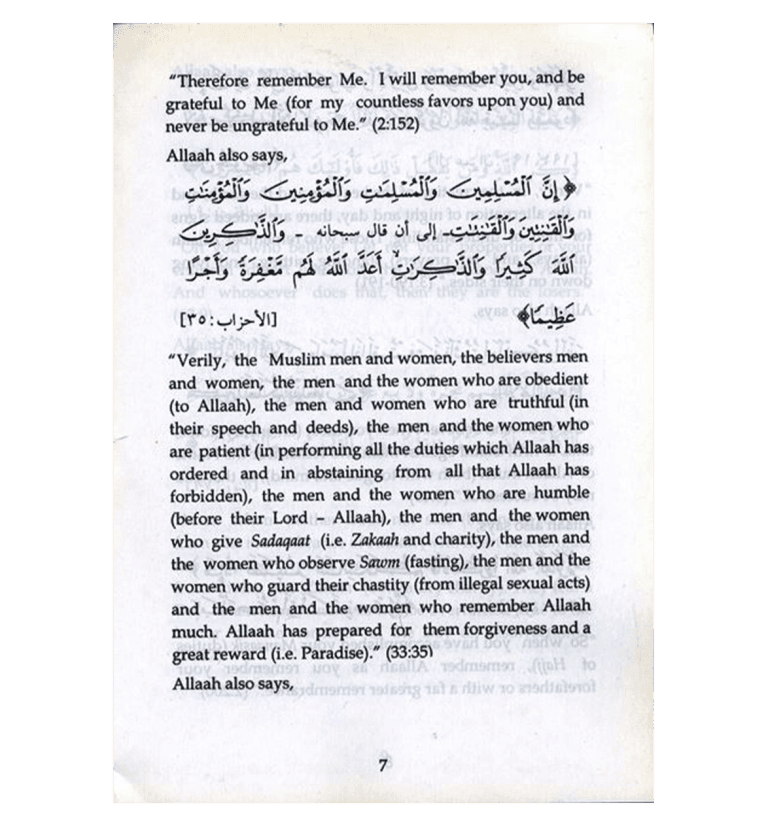 “Therefore remember Me. I will remember you, and be
grateful to Me (for my countless favors upon you) and
never be ungrateful to Me.” (2:152)
Allaah also says,
﴿ إِنَّ ٱلْمُسْلِمِينَ وَٱلْمُسْلِمَٰتِ وَٱلْمُؤْمِنِينَ وَٱلْمُؤْمِنَٰتِ
وَٱلْقَٰنِتِينَ وَٱلْقَٰنِتَٰتِ ـ إلى أن قال سبحانه ـ وَٱلذَّٰكِرِينَ
ٱللَّهَ كَثِيرًا وَٱلذَّٰكِرَٰتِ أَعَدَّ ٱللَّهُ لَهُم مَّغْفِرَةً وَأَجْرًا
عَظِيمًا﴾ [الأحزاب: ٣٥]
“Verily, the Muslim men and women, the believers men
and women, the men and the women who are obedient
(to Allaah), the men and women who are truthful (in
their speech and deeds), the men and the women who
are patient (in performing all the duties which Allaah has
ordered and in abstaining from all that Allaah has
forbidden), the men and the women who are humble
(before their Lord – Allaah), the men and the women
who give Sadaqaat (i.e. Zakaah and charity), the men and
the women who observe Sawm (fasting), the men and the
women who guard their chastity (from illegal sexual acts)
and the men and the women who remember Allaah
much. Allaah has prepared for them forgiveness and a
great reward (i.e. Paradise).” (33:35)
Allaah also says,
7